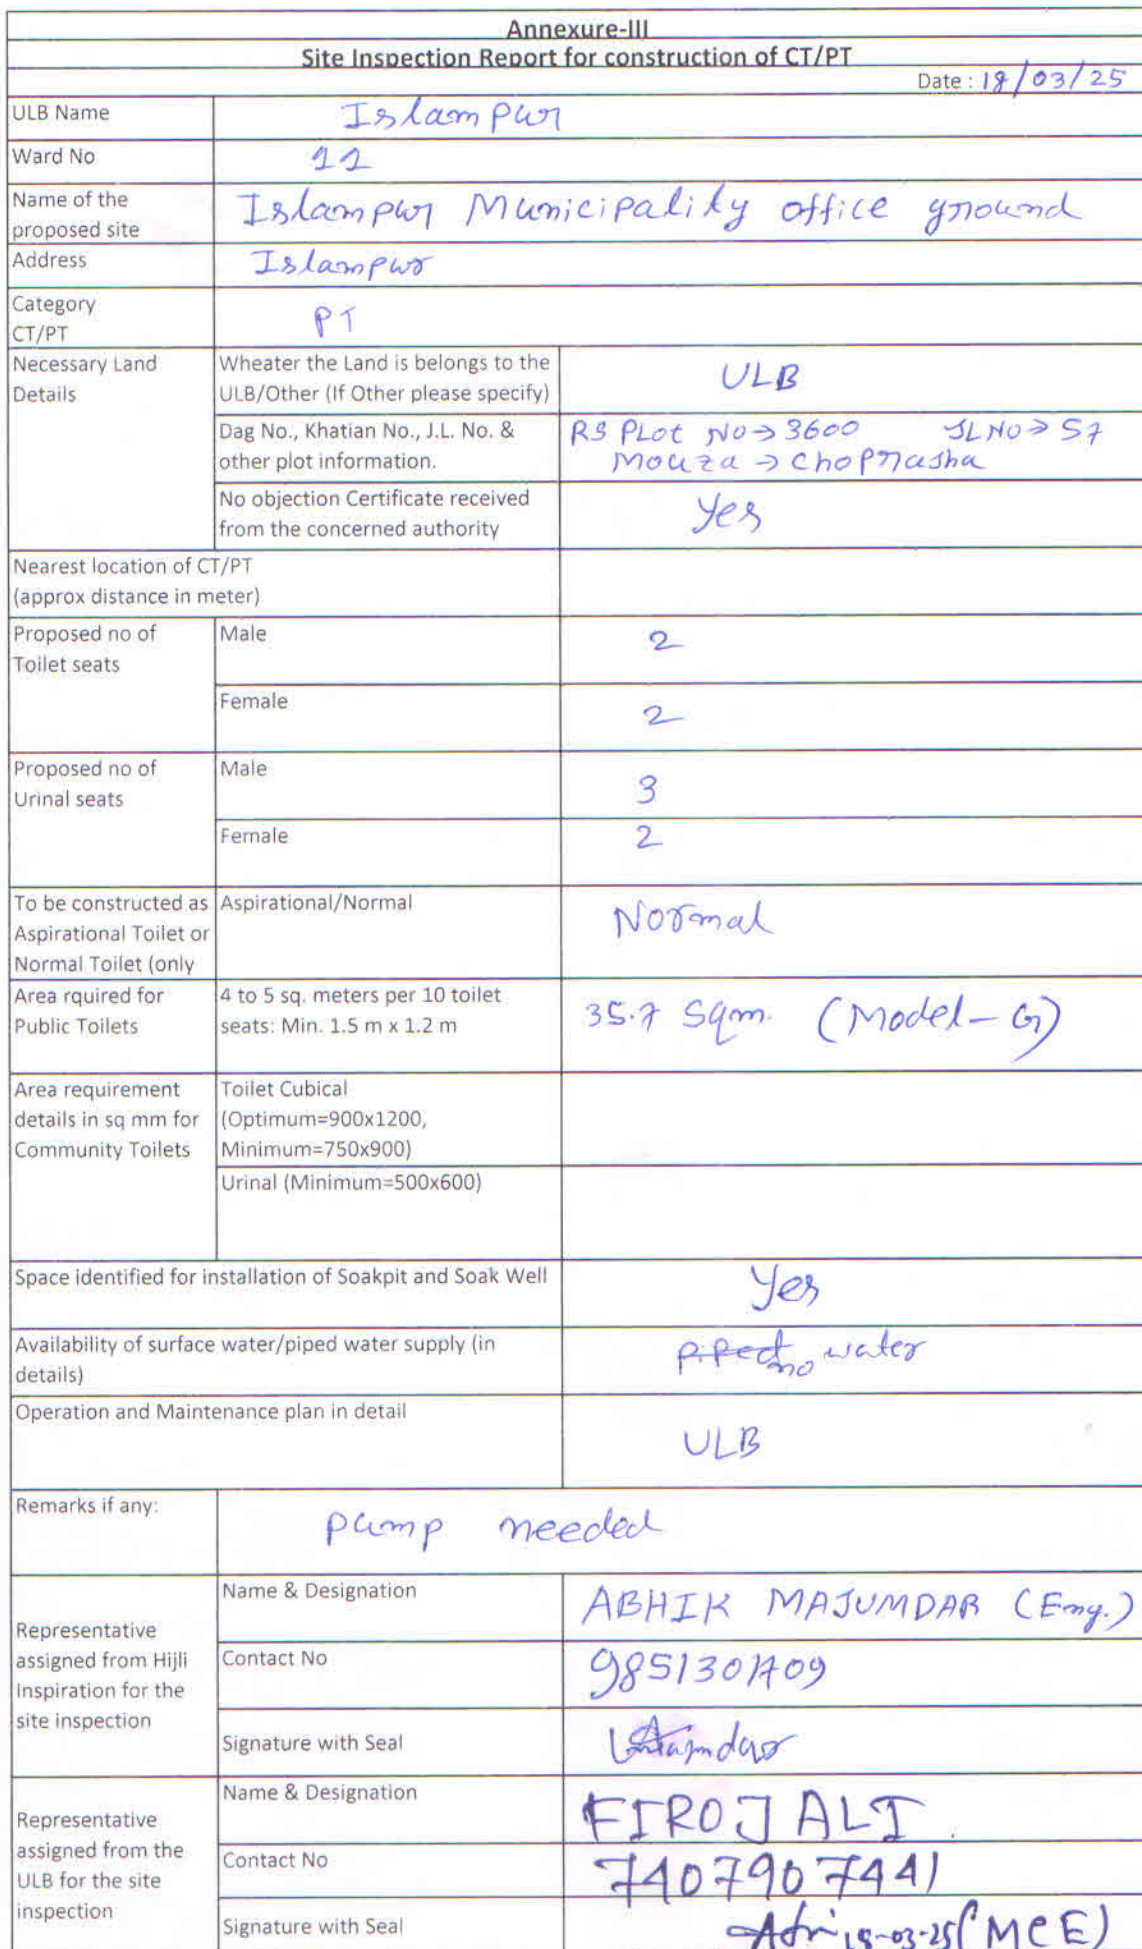 Annexure-III
Site Inspection Report for construction of CT/PT
Date : 18/03/25
ULB Name Islampur
Ward No 11
Name of the proposed site Islampur Municipality office ground
Address Islampur
Category CT/PT PT
Necessary Land Details
Wheater the Land is belongs to the ULB/Other (If Other please specify) ULB
Dag No., Khatian No., J.L. No. & other plot information. RS PLot No→3600 JL No→57
Mouza → Choprasha
No objection Certificate received from the concerned authority Yes
Nearest location of CT/PT
(approx distance in meter)
Proposed no of Toilet seats
Male 2
Female 2
Proposed no of Urinal seats
Male 3
Female 2
To be constructed as Aspirational Toilet or Normal Toilet (only
Aspirational/Normal Normal
Area rquired for Public Toilets
4 to 5 sq. meters per 10 toilet seats: Min. 1.5 m x 1.2 m 35.7 Sqm. (Model-G)
Area requirement details in sq mm for Community Toilets
Toilet Cubical
(Optimum=900x1200,
Minimum=750x900)
Urinal (Minimum=500x600)
Space identified for installation of Soakpit and Soak Well Yes
Availability of surface water/piped water supply (in details) no water
Operation and Maintenance plan in detail ULB
Remarks if any: pump needed
Representative assigned from Hijli Inspiration for the site inspection
Name & Designation ABHIK MAJUMDAR (Eng.)
Contact No
Signature with Seal
Representative assigned from the ULB for the site inspection
Name & Designation FIROJ ALI
Contact No 7407907441
Signature with Seal 18-03-25 (MCE)